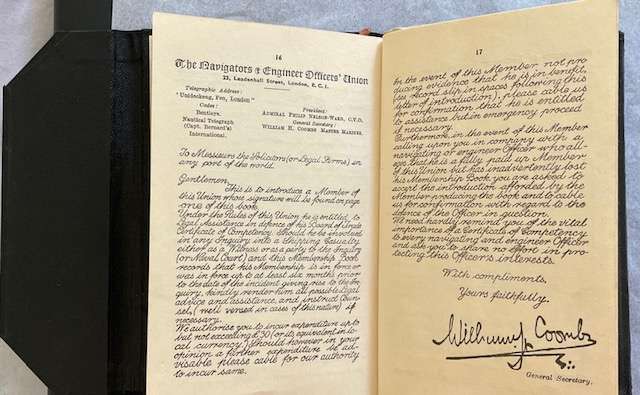 16
The Navigators & Engineer Officers' Union
23, Leadenhall Street, London, E.C.3.
Telegraphic Address:
Codes:
Bentleys.
Nautical Telegraph
(Capt. Bernard's)
International.
President:
ADMIRAL PHILIP NELSON-WARD, C.V.O.
General Secretary:
WILLIAM H. COOMBS MASTER MARINER.
To Messieurs the Solicitors (or Legal Firms) in
any part of the world.
Gentlemen,
This is to introduce a Member of
this Union whose signature will be found on page
one of this book.
Under the Rules of this Union he is entitled, to
Legal Assistance in defence of his Board of Trade
Certificate of Competency, should he be involved
in any Inquiry into a Shipping Casualty,
either as a Witness or as a party to the Inquiry
(or Naval Court) and this Membership Book
records that his Membership is in force or
was in force up to at least six months prior
to the date of the incident giving rise to the In-
quiry, kindly render him all possible legal
advice and assistance, and instruct Coun-
sel, (well versed in cases of this nature) if
necessary.
We authorise you to incur expenditure up to
but not exceeding £30 (or its equivalent in lo-
cal currency.) Should however in your
opinion a further expenditure be ad-
visable please cable for our authority
to incur same.
17
In the event of this Member not pro-
ducing evidence that he is in benefit,
(see record slip in spaces following this
letter of introduction), please cable us
for confirmation that he is entitled
to assistance but in emergency proceed
if necessary.
Furthermore, in the event of this Member
calling upon you in company with a
navigating or engineer Officer who all-
eges that he is a fully paid up Member
of this Union but has inadvertently lost
his Membership Book you are asked to
accept the introduction afforded by the
Member producing the book and to cable
us for confirmation with regard to the
defence of the Officer in question.
We need hardly remind you of the vital
importance of a Certificate of Competency
to every navigating and engineer Officer
and ask you to spare no effort in pro-
tecting this Officer's interests.
With compliments,
Yours faithfully,
William H. Coombs
General Secretary.